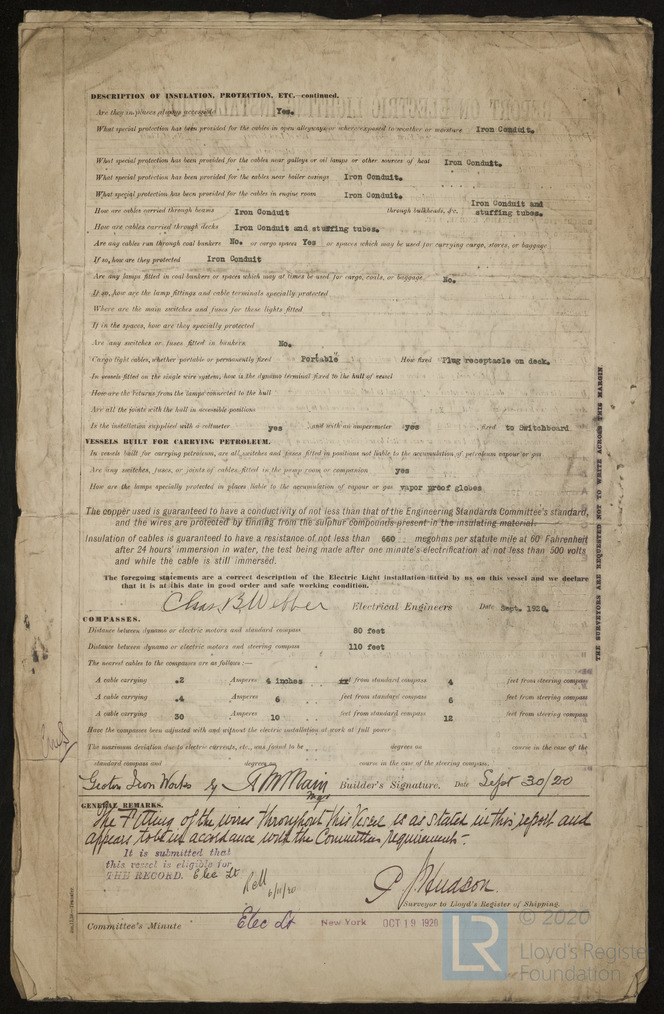 DESCRIPTION OF INSULATION, PROTECTION, ETC.—continued.
Are they in places always accessible Yes.
What special protection has been provided for the cables in open alleyways or where exposed to weather or moisture Iron Conduit.
What special protection has been provided for the cables near galleys or oil lamps or other sources of heat Iron Conduit.
What special protection has been provided for the cables near boiler casings Iron Conduit.
What special protection has been provided for the cables in engine room Iron Conduit.
How are cables carried through beams Iron Conduit through bulkheads, &c. Iron Conduit and stuffing tubes.
How are cables carried through decks Iron Conduit and stuffing tubes.
Are any cables run through coal bunkers No. or cargo spaces Yes or spaces which may be used for carrying cargo, stores, or baggage
If so, how are they protected Iron Conduit
Are any lamps fitted in coal bunkers or spaces which may at times be used for cargo, coals, or baggage No.
If so, how are the lamp fittings and cable terminals specially protected
Where are the main switches and fuses for these lights fitted
If in the spaces, how are they specially protected
Are any switches or fuses fitted in bunkers No.
Cargo light cables, whether portable or permanently fixed Portable How fixed Plug receptacle on deck.
In vessels fitted on the single wire system, how is the dynamo terminal fixed to the hull of vessel
How are the returns from the lamps connected to the hull
Are all the joints with the hull in accessible positions
Is the installation supplied with a voltmeter yes and with an amperemeter yes fixed to Switchboard
VESSELS BUILT FOR CARRYING PETROLEUM.
In vessels built for carrying petroleum, are all switches and fuses fitted in positions not liable to the accumulation of petroleum vapour or gas
Are any switches, fuses, or joints of cables fitted in the pump room or companion yes
How are the lamps specially protected in places liable to the accumulation of vapour or gas vapor proof globes
The copper used is guaranteed to have a conductivity of not less than that of the Engineering Standards Committee's standard,
and the wires are protected by tinning from the sulphur compounds present in the insulating material.
Insulation of cables is guaranteed to have a resistance of not less than 660 megohms per statute mile at 60° Fahrenheit
after 24 hours' immersion in water, the test being made after one minute's electrification at not less than 500 volts
and while the cable is still immersed.
The foregoing statements are a correct description of the Electric Light installation fitted by us on this vessel and we declare
that it is at this date in good order and safe working condition.
Chas. B. Webber Electrical Engineers Date Sept. 1920.
COMPASSES.
Distance between dynamo or electric motors and standard compass 80 feet
Distance between dynamo or electric motors and steering compass 110 feet
The nearest cables to the compasses are as follows:—
A cable carrying .2 Amperes 4 inches from standard compass 4 feet from steering compass
A cable carrying .4 Amperes 6 feet from standard compass 6 feet from steering compass
A cable carrying 30 Amperes 10 feet from standard compass 12 feet from steering compass
Have the compasses been adjusted with and without the electric installation at work at full power
The maximum deviation due to electric currents, etc., was found to be degrees on course in the case of the
standard compass and degrees on course in the case of the steering compass.
Groton Iron Works by Mgr Builder's Signature. Date Sept 30/20
GENERAL REMARKS.
The Fitting of the wires throughout this Vessel is as stated in this report and
appears to be in accordance with the Committees requirements.
It is submitted that
this vessel is eligible for
THE RECORD. Elec Lt
6/11/20
P. J. Hudson.
Surveyor to Lloyd's Register of Shipping.
Committee's Minute Elec Lt New York OCT 19 1920
THE SURVEYORS ARE REQUESTED NOT TO WRITE ACROSS THIS MARGIN
LR
© 2020
Lloyd's Register
Foundation